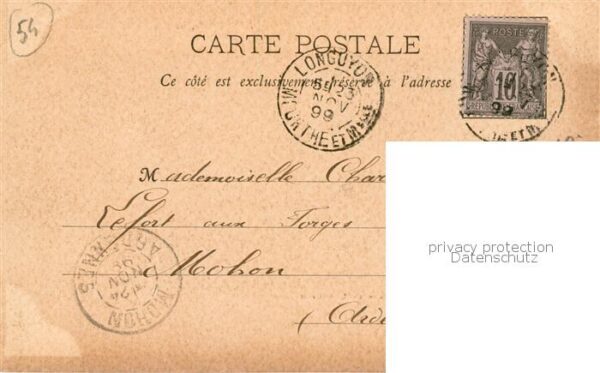 54
CARTE POSTALE
Ce côté est exclusivement réservé à l'adresse
LONGUYON
23
NOV
99
MEURTHE ET MLLE
POSTE
10
99
Mademoiselle Char
Lefort aux Forges
à Mohon
(Arde
MOHON
ARDENNES
24
NOV
privacy protection
Datenschutz